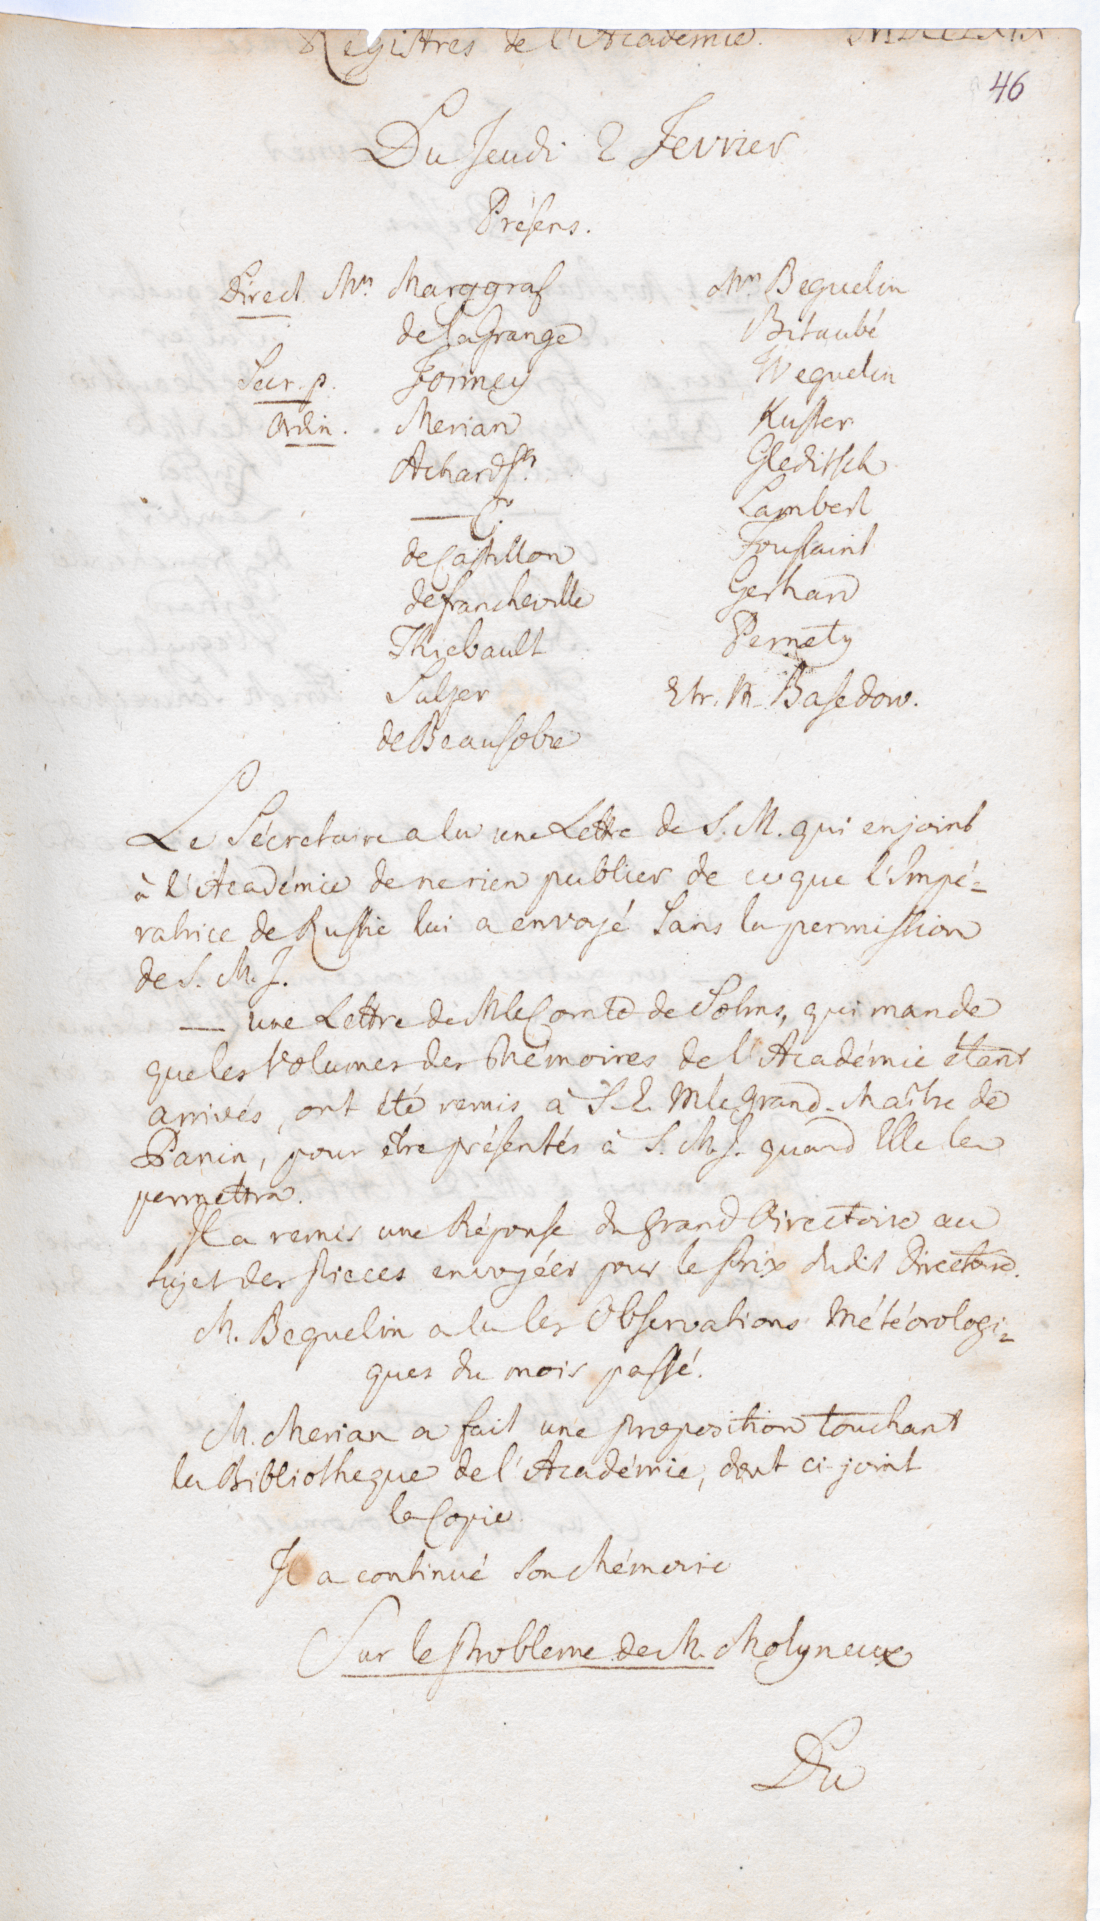 Registres de l'Académie. MDCCLXIX
46
Du Jeudi 2 Fevrier
Présens.
Direct. Mrs Marggraf
de la Grange
Secr. p. Formey
Ordin. Merian
Achard Sr
— Jr
de Castillon
de Francheville
Thiebault
Sulzer
de Beausobre
Mrs Beguelin
Bitaubé
Weguelin
Kuster
Gleditsch
Lambert
Toussaint
Gerhard
Pernety
Etr. M. Basedow.
Le Sécretaire a lu une Lettre de S. M. qui enjoint
à l'Académie de ne rien publier de ce que l'Impé-
ratrice de Russie lui a envoyé sans la permission
de S. M. I.
— une Lettre de M le Comte de Solms, qui mande
que les Volumes des Mémoires de l'Académie étant
arrivés, ont été remis à S. E. M le Grand-Maître de
Panin, pour être présentés à S. M. I. quand Elle le
permettra.
Il a remis une Réponse du Grand Directoire au
sujet des Pieces envoyées pour le Prix dudit Directoire.
M. Beguelin a lu les Observations Météorologi-
ques du mois passé.
M. Merian a fait une proposition touchant
la Bibliotheque de l'Académie, dont ci-joint
la Copie.
Il a continué son Mémoire
Sur le Probleme de M. Molyneux
Du